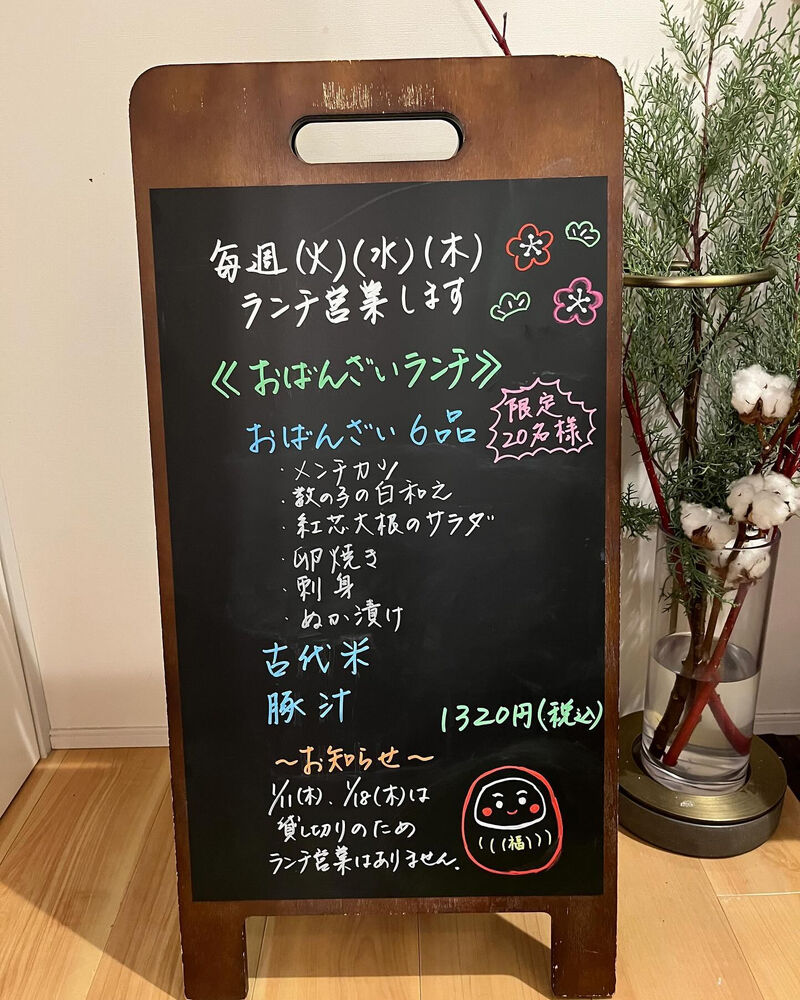 毎週(火)(水)(木)
ランチ営業します
《おばんざいランチ》
限定
20名様
おばんざい6品
・メンチカツ
・数の子の白和え
・紅芯大根のサラダ
・卵焼き
・刺身
・ぬか漬け
古代米
豚汁
1320円(税込)
〜お知らせ〜
1/11(木)、1/18(木)は
貸し切りのため
ランチ営業はありません。
福